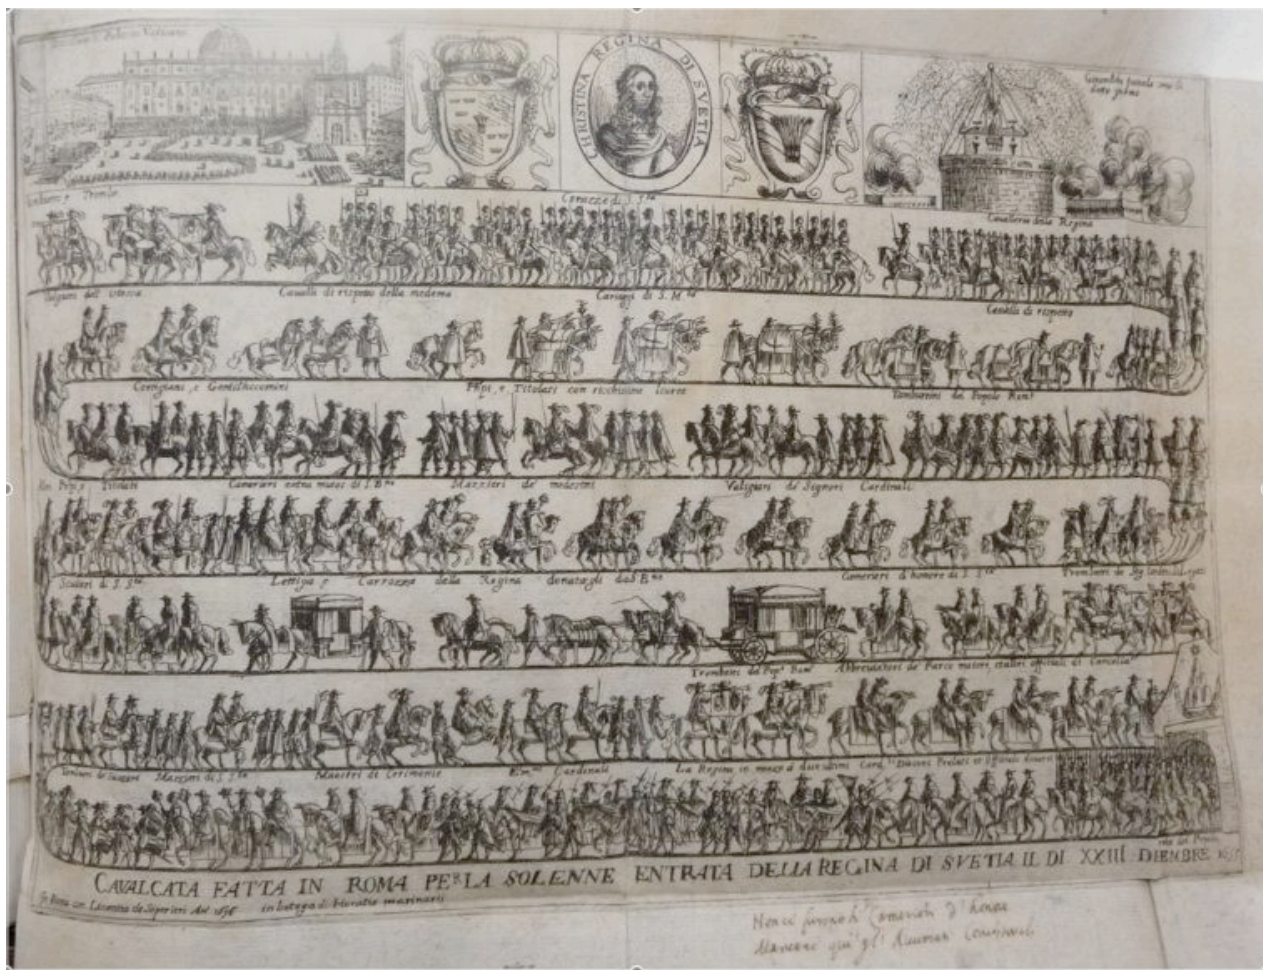 Palazzo Vaticano
CHRISTINA REGINA DI SVETIA
Girandola
Tamburi, e Trombe
Corazze di S. S.tà
Cavalleria della Regina
dell' istessa
Cavalli di rispetto della medema
Cariaggi di S. M.tà
Cavalli di rispetto
Cortigiani, e Gentilhuomini
P'npi, e, Titolati con ricchissime livree
Tamburini del Popolo Rom.o
P'npi, e Titolati
Camerieri extra muros di S. B.ne
Mazzieri de' medesmi
Valigiari de' Signori Cardinali
Scudieri di S. S.tà
Lettiga, e Carrozza della Regina donatagli da S. B.ne
Camerieri d'honore di S. S.tà
Trombetti de
Trombetti del Pop.o Rom.o
Abbreviatori de Parco maiori, et altri officiali di Cancelia
Mazzieri di S. S.tà
Maestri di Cerimonie
Em.mi Cardinali
La Regina in mezzo à due ultimi Card.li Diaconi Prelati et Officiali diversi
CAVALCATA FATTA IN ROMA PER LA SOLENNE ENTRATA DELLA REGINA DI SVETIA IL DI XXIII DIEMBRE
In Roma con Licentia de Superiori An.o 1656 in botega di Horatio marinarii
Non ci furono li Camerieri d'honore